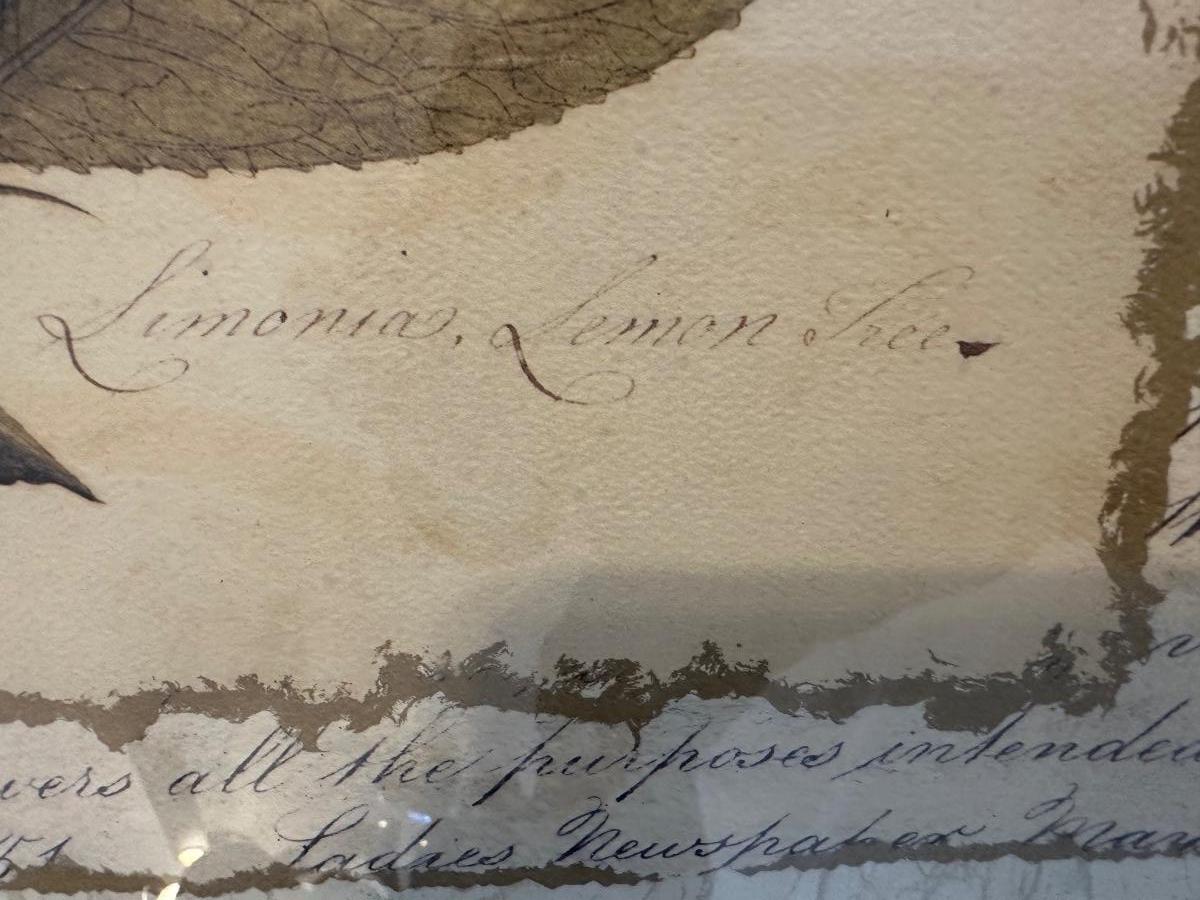 Limonia, Lemon Tree.
all the purposes intended
51 Ladies Newspaper